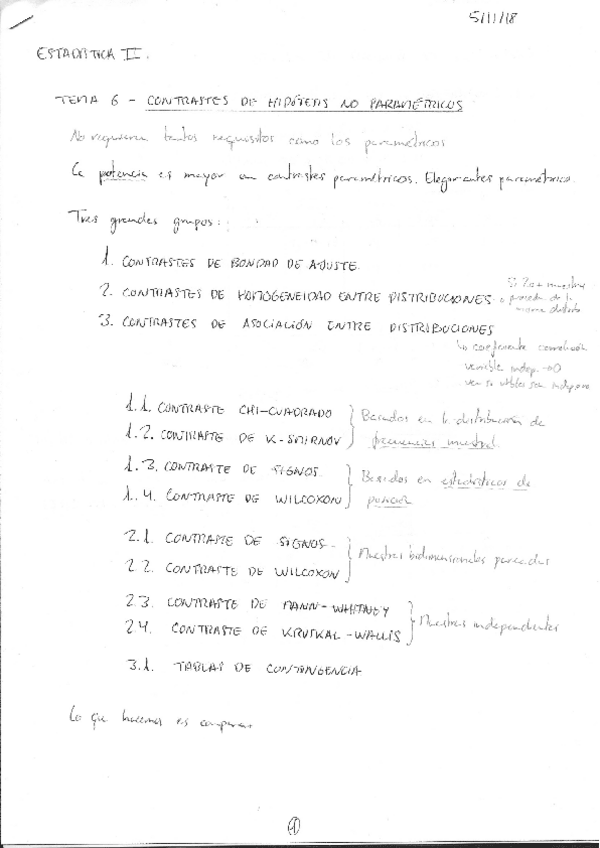 5/11/18
ESTADÍSTICA II.
TEMA 6 - CONTRASTES DE HIPÓTESIS NO PARAMÉTRICOS
No requieren tantos requisitos como los paramétricos
La potencia es mayor en contrastes paramétricos. Elegir antes paramétrico.
Tres grandes grupos:
1. CONTRASTES DE BONDAD DE AJUSTE
2. CONTRASTES DE HOMOGENEIDAD ENTRE DISTRIBUCIONES
Si 2 o + muestras
de la
misma distrib
3. CONTRASTES DE ASOCIACIÓN ENTRE DISTRIBUCIONES
coeficiente correlación
variable indep. → 0
ver si vbles son indep
1.1. CONTRASTE CHI-CUADRADO
1.2. CONTRASTE DE K-SMIRNOV
Basados en la distribución de
frecuencias muestral
1.3. CONTRASTE DE SIGNOS
1.4. CONTRASTE DE WILCOXON
Basados en estadísticos de
posición
2.1. CONTRASTE DE SIGNOS
2.2. CONTRASTE DE WILCOXON
Muestras bidimensionales pareadas
2.3. CONTRASTE DE MANN-WHITNEY
2.4. CONTRASTE DE KRUSKAL-WALLIS
Muestras independientes
3.1. TABLAS DE CONTINGENCIA
Lo que hacemos es comparar
1